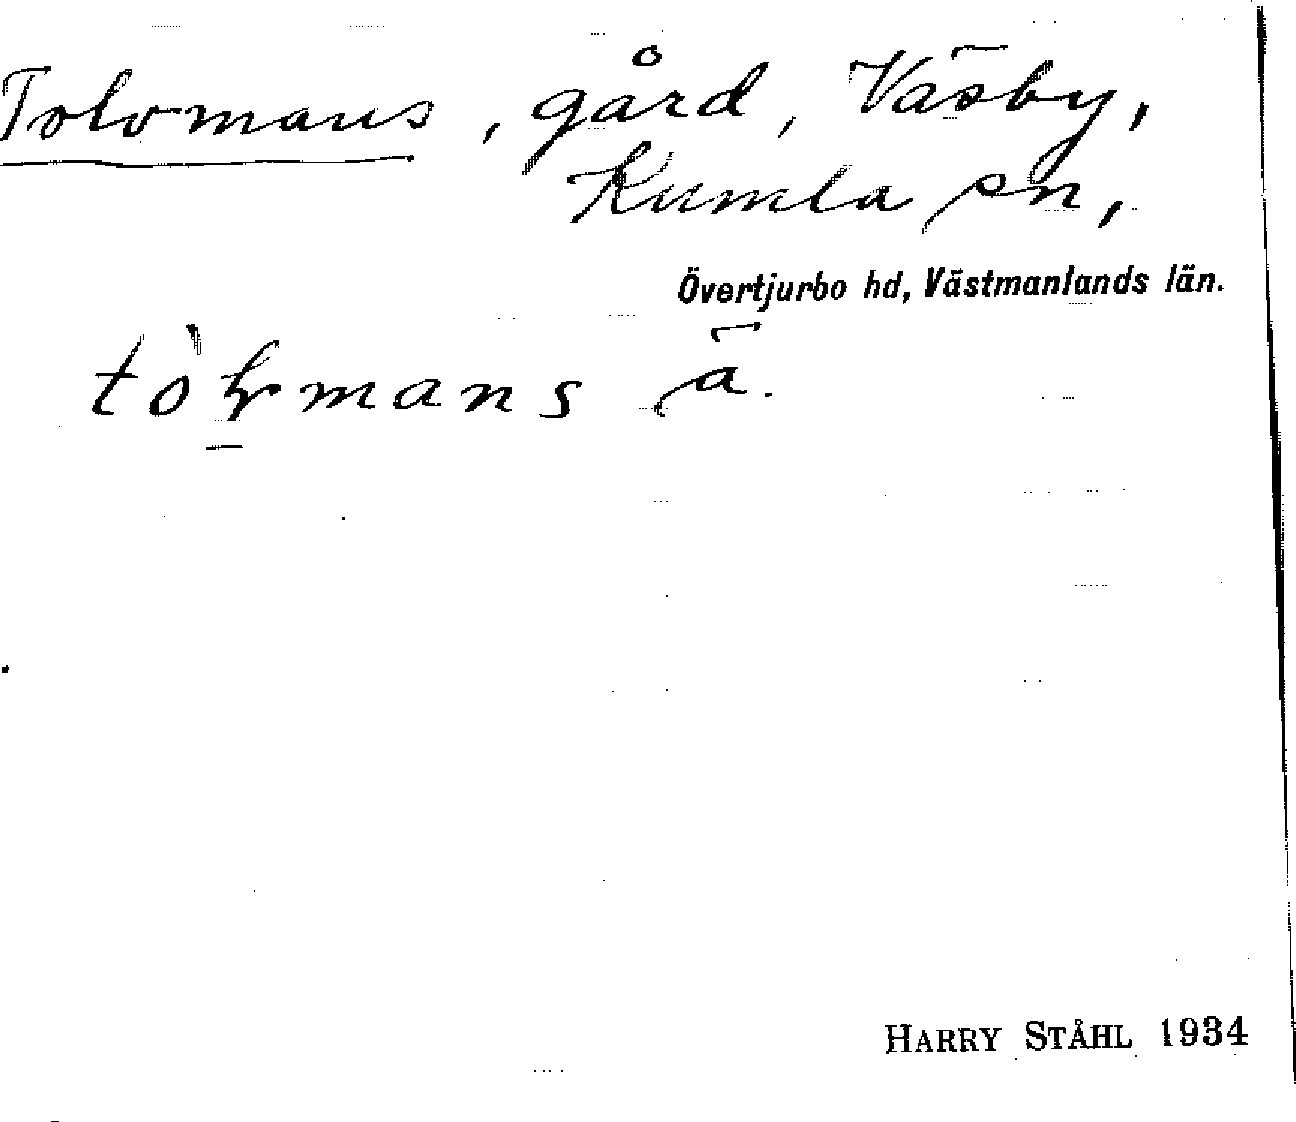 Tolvmans, gård, Väsby,
Kumla sn,
Övertjurbo hd, Västmanlands län.
mans ä.
HARRY STÅHL 1934